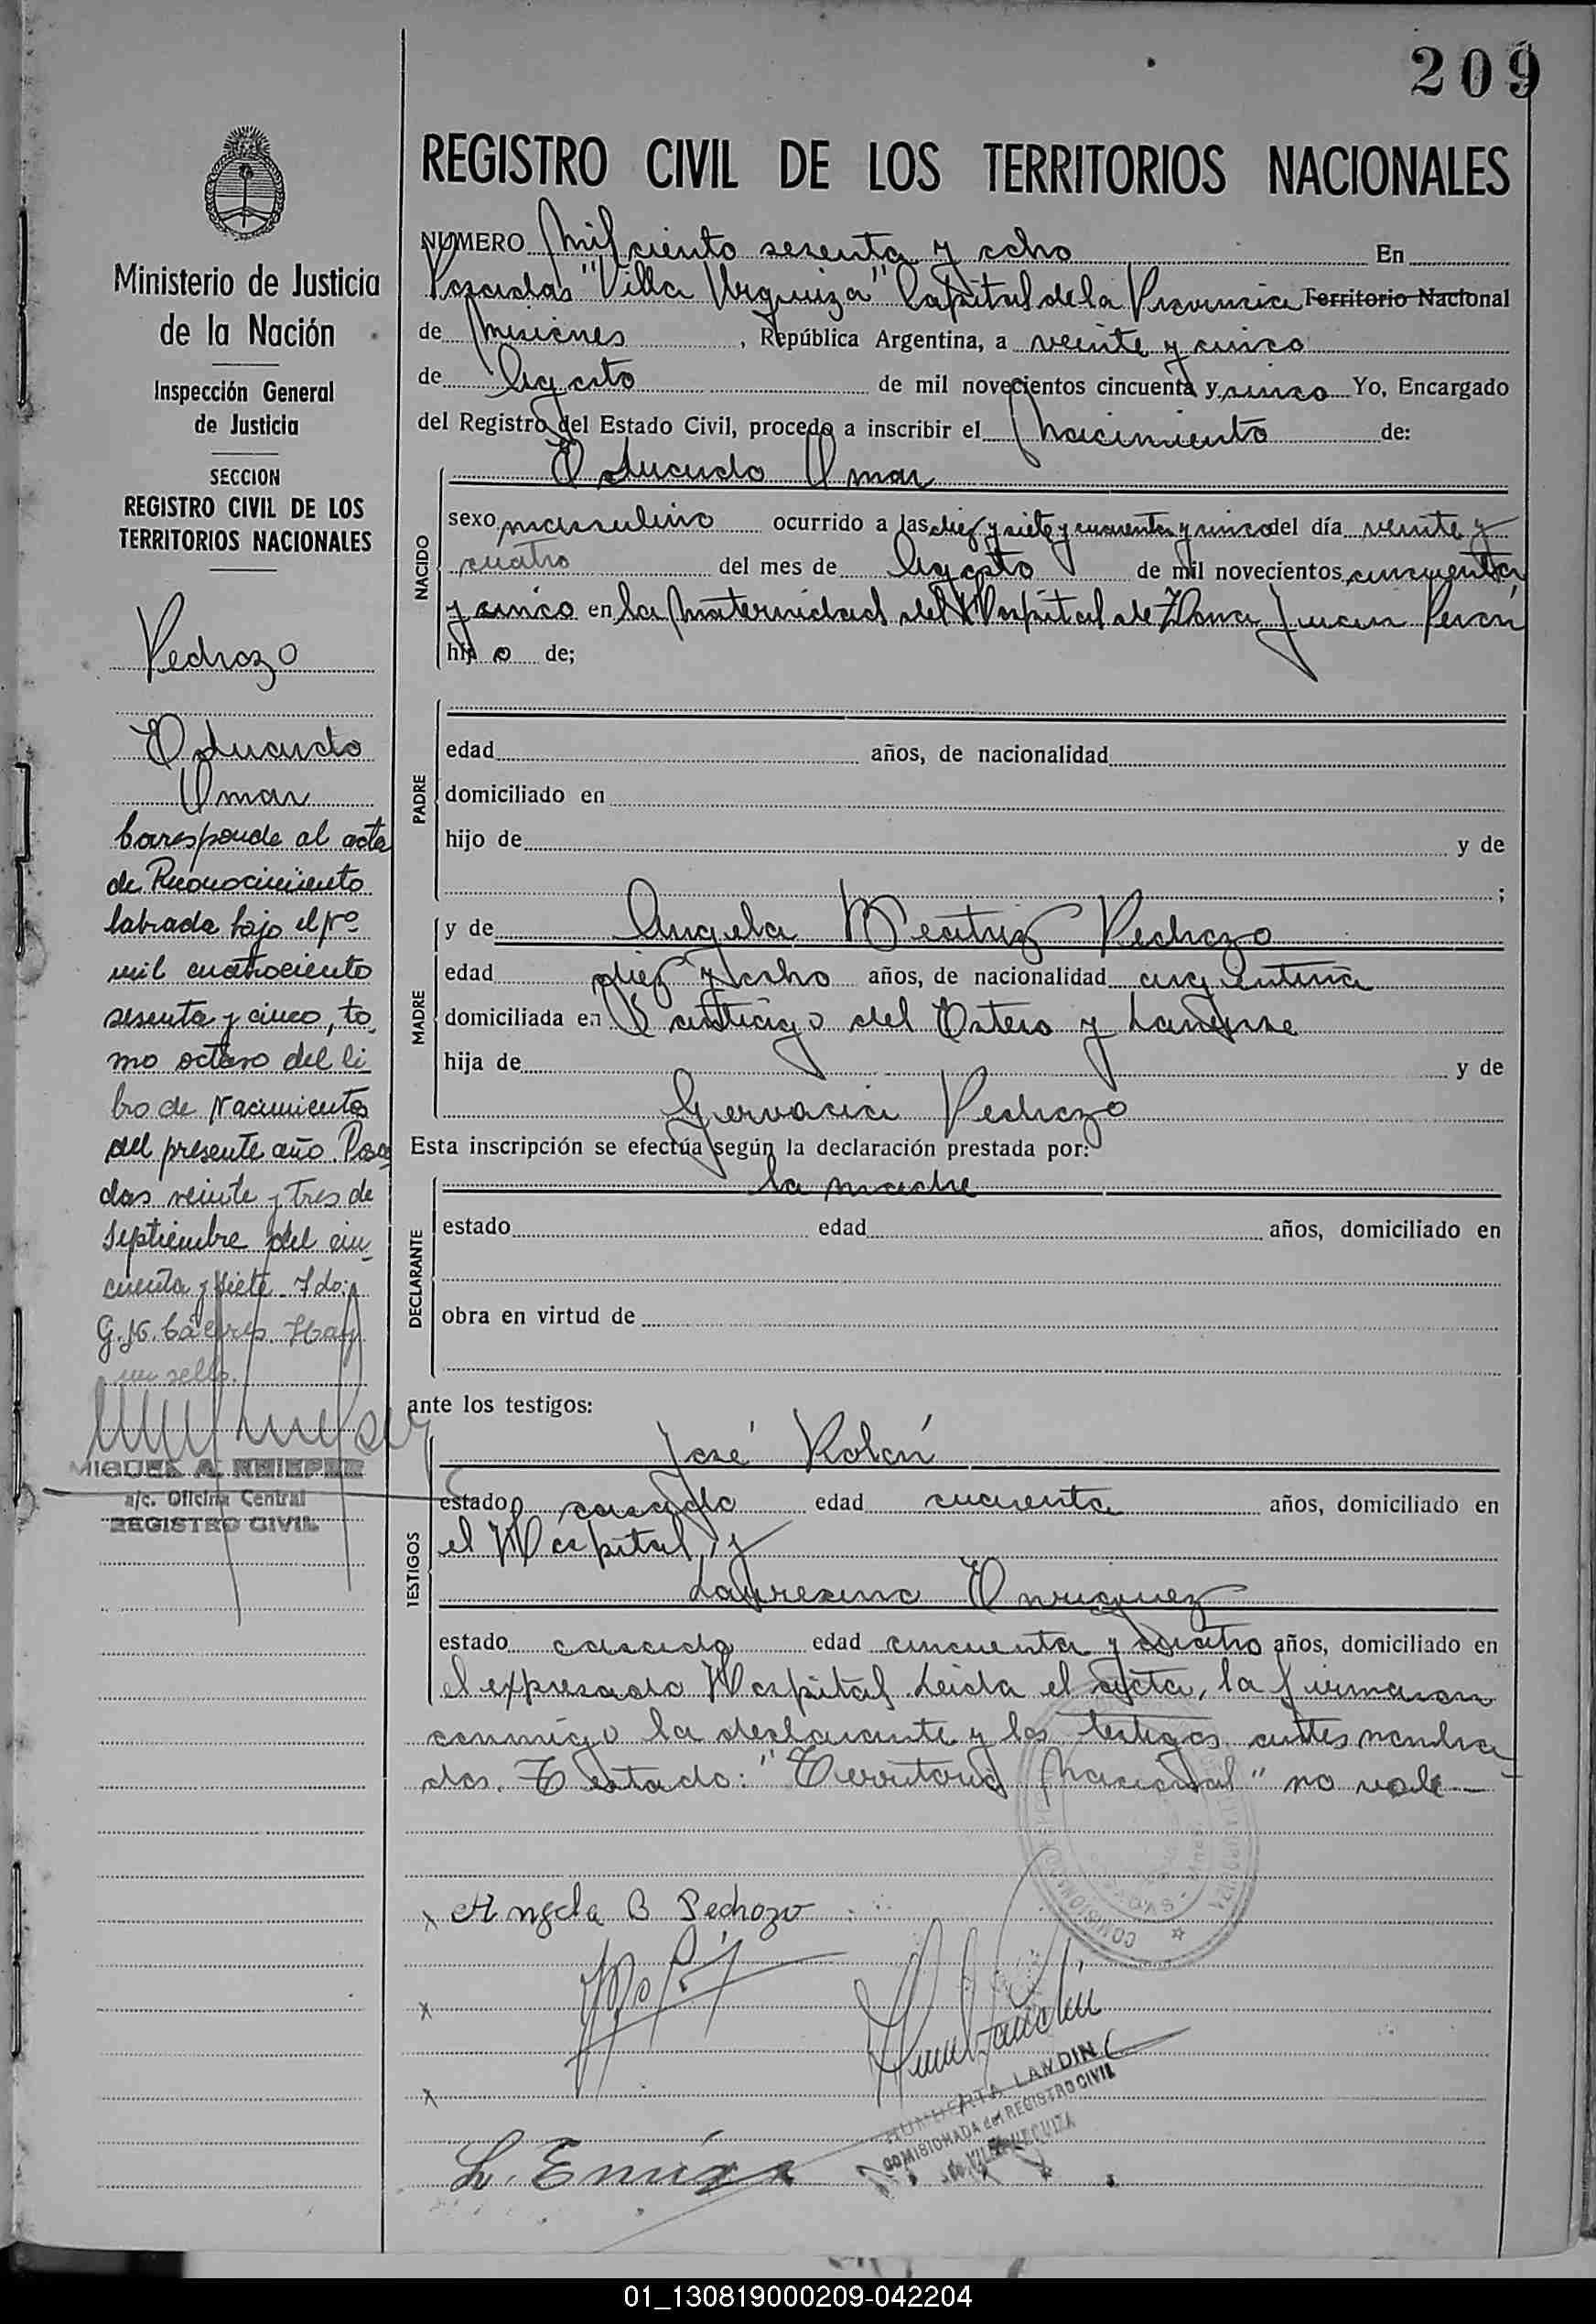 209
REGISTRO CIVIL DE LOS TERRITORIOS NACIONALES
Ministerio de Justicia
de la Nación
Inspección General
de Justicia
SECCION
REGISTRO CIVIL DE LOS
TERRITORIOS NACIONALES
Pedrozo
Eduardo
Omar
Corresponde al acta
de Reconocimiento
labrada bajo el No
mil cuatrociento
sesenta y cinco, to
mo octavo del li
bro de Nacimientos
del presente año. Posa
das veinte y tres de
Septiembre del cin
cuenta y siete. Fdo:
G. N. Cáceres. Hay
un sello.
MIGUEL A.
a/c. Oficina Central
REGISTRO CIVIL
NUMERO Mil ciento sesenta y ocho En
Posadas "Villa Urquiza" Capital de la Provincia Territorio Nacional
de Misiones, República Argentina, a veinte y cinco
de Agosto de mil novecientos cincuenta y cinco Yo, Encargado
del Registro del Estado Civil, procedo a inscribir el Nacimiento de:
Eduardo Omar
NACIDO
sexo masculino ocurrido a las diez y siete y cuarenta y cinco del día veinte y
cuatro del mes de Agosto de mil novecientos cincuenta
y cinco en la Maternidad del Hospital de Zona Juan Perón
hijo de;
PADRE
edad años, de nacionalidad
domiciliado en
hijo de y de
;
MADRE
y de Angela Beatriz Pedrozo
edad diez y ocho años, de nacionalidad argentina
domiciliada en Santiago del Estero y Lanusse
hija de y de
Gervacia Pedrozo
Esta inscripción se efectúa según la declaración prestada por:
la madre
DECLARANTE
estado edad años, domiciliado en
obra en virtud de
ante los testigos:
TESTIGOS
José Rolón
estado casado edad cuarenta años, domiciliado en
el Hospital, y
Laureano Enriquez
estado casado edad cincuenta y cuatro años, domiciliado en
el expresado Hospital. Leida el acta, la firmaron
conmigo la declarante y los testigos antes nombra
dos. Testado: "Territorio Nacional" no vale
x Angela B Pedrozo
x
x
LANDIN
COMISIONADA del REGISTRO CIVIL
de VILLA URQUIZA
01_130819000209-042204